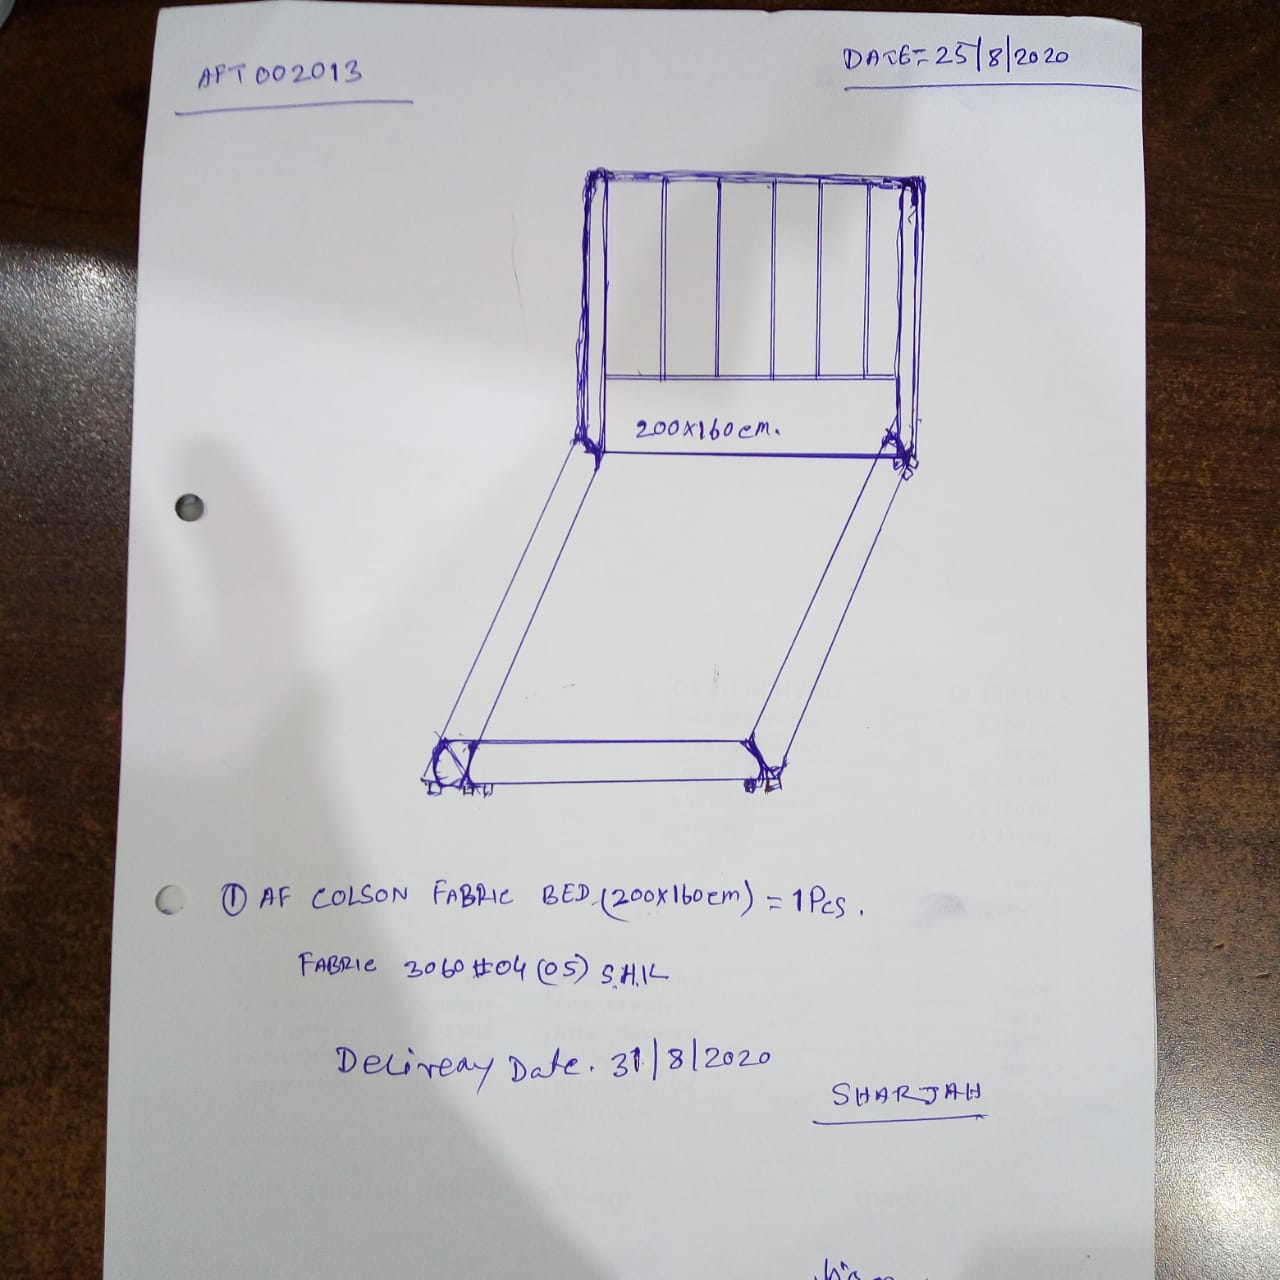 AFT002013
DATE=25/8/2020
200x160cm.
① AF COLSON FABRIC BED.(200x160cm) = 1Pcs.
FABRIC 3060#04(05) S.H.K
Deliveay Date. 31/8/2020
SHARJAH